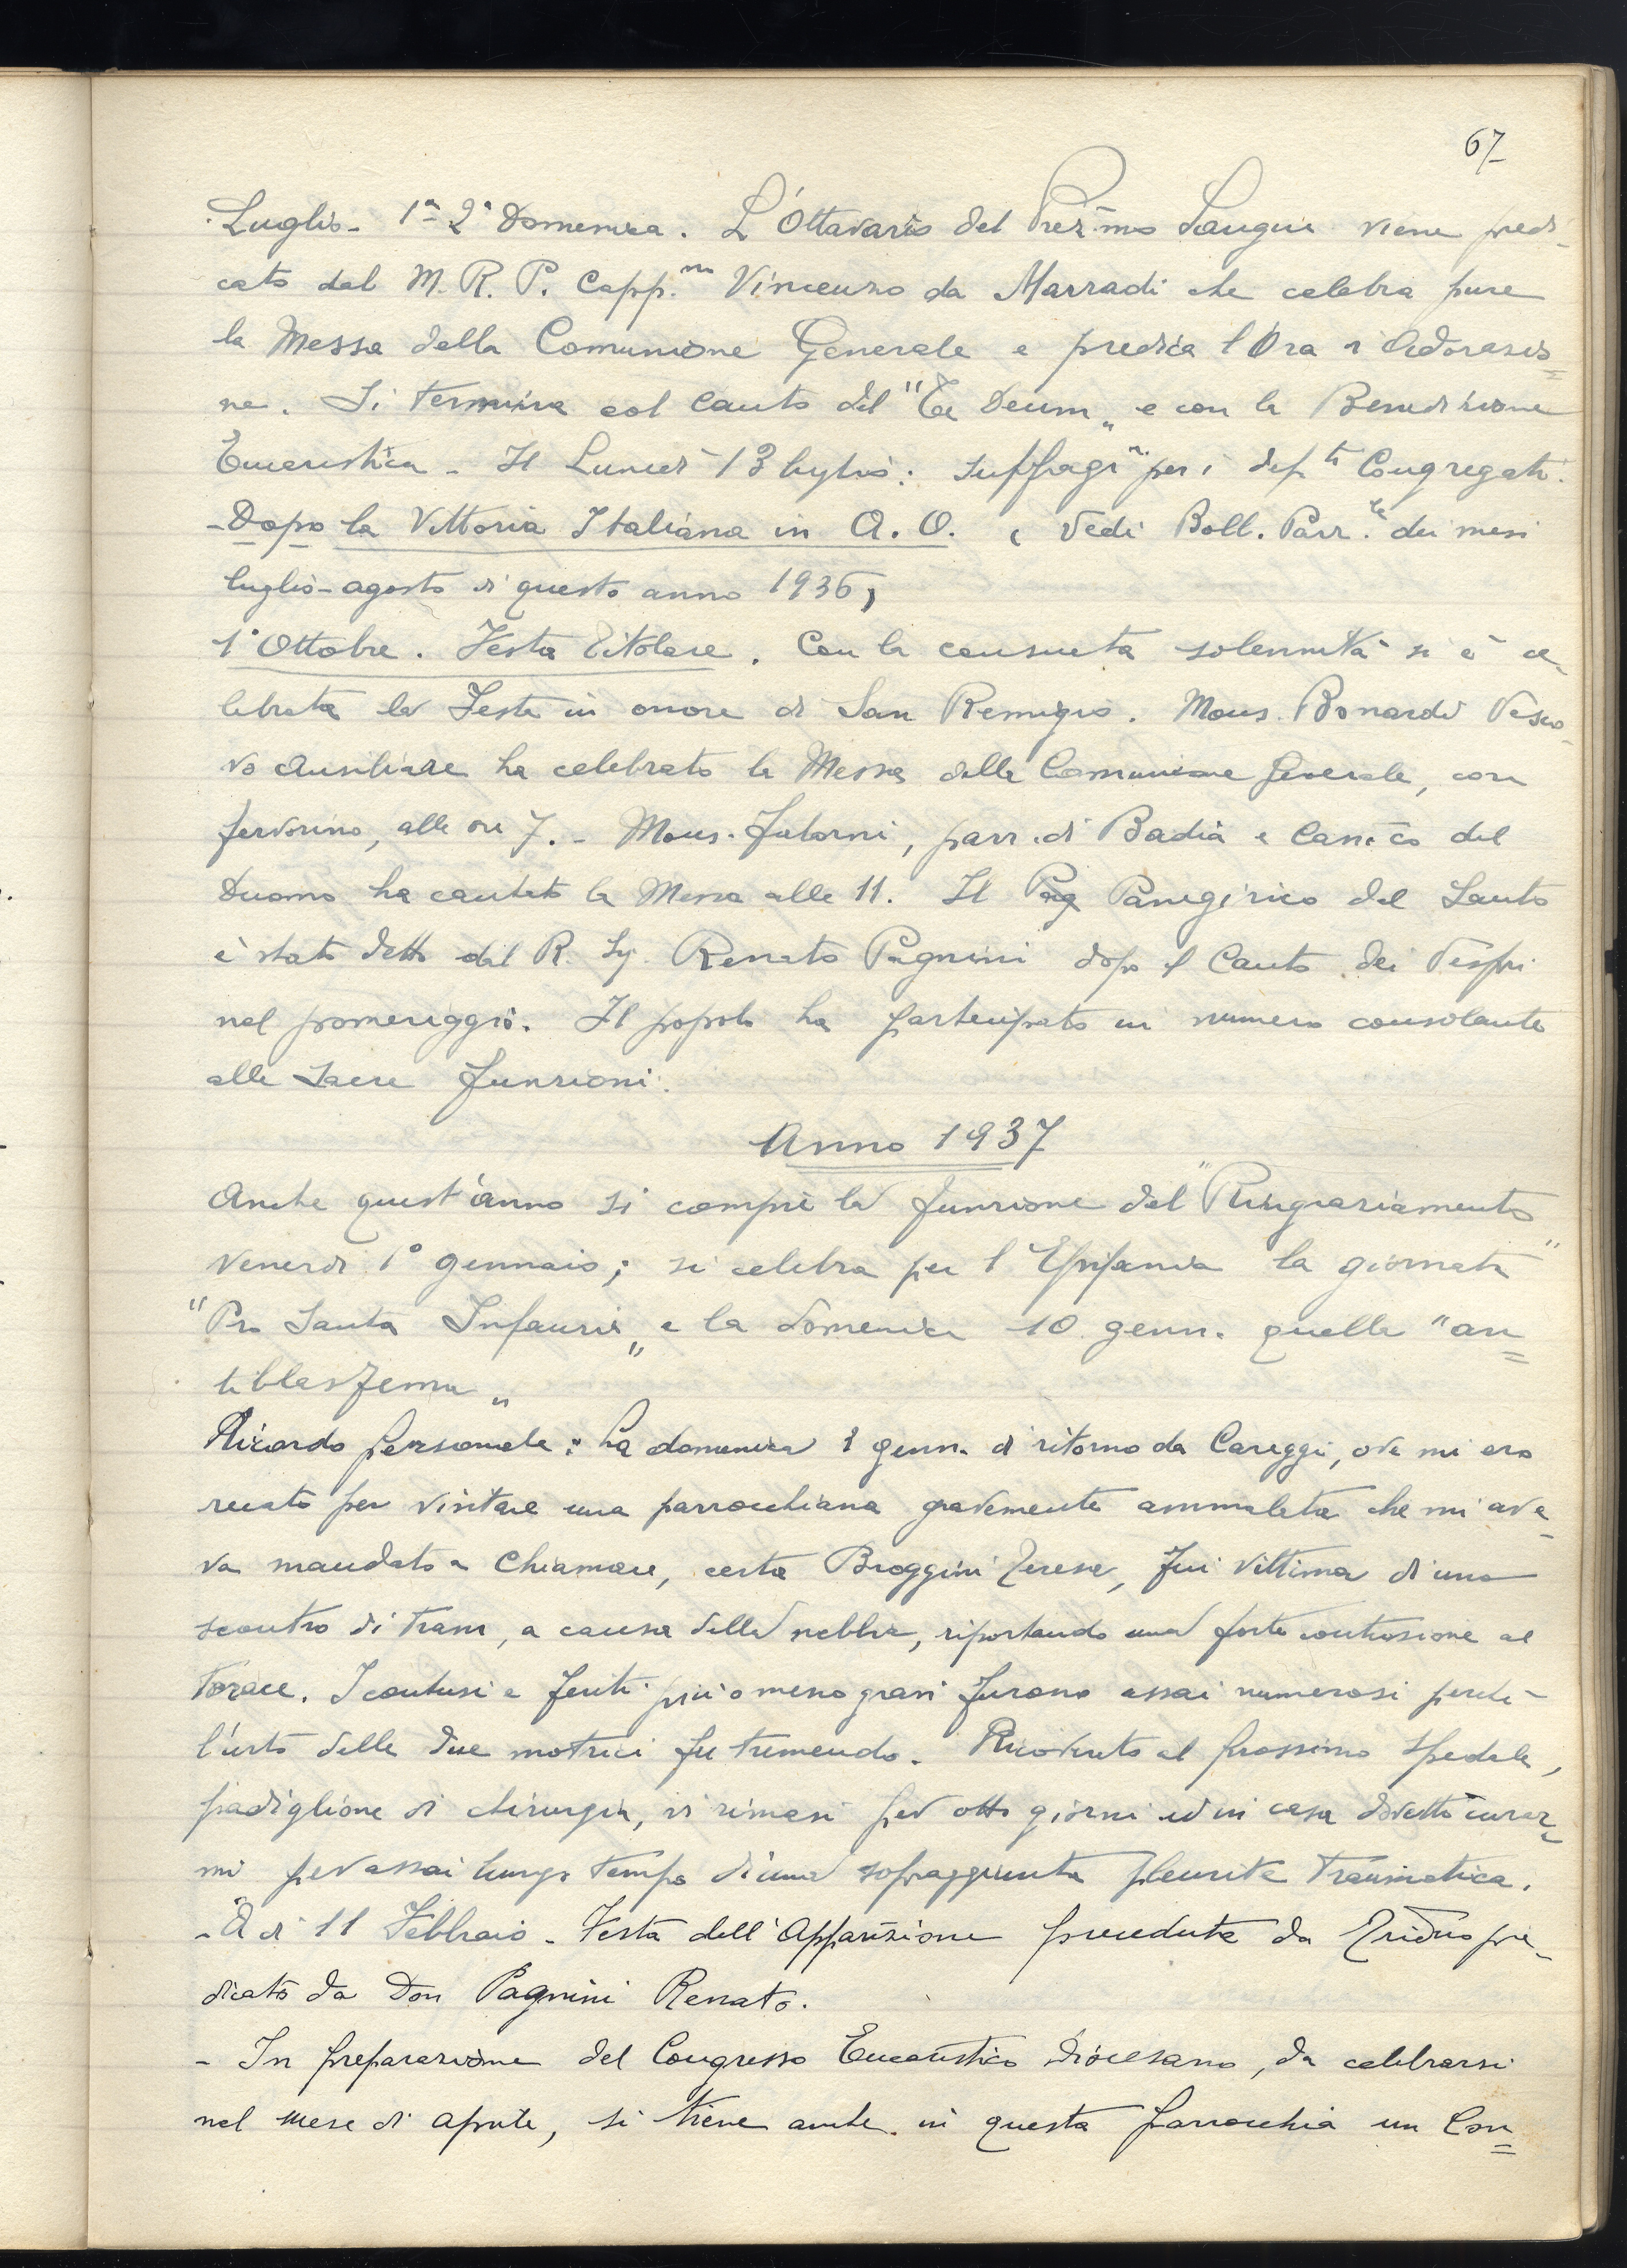 67
Luglio - 1ª 2ª Domenica. L'Ottavario del Prez.mo Sangue viene predi-
cato dal M. R. P. Capp.no Vincenzo da Marradi che celebra pure
la Messa della Comunione Generale e predica l'Ora d'Adorazio=
ne. Si termina col canto del "Te Deum„ e con la Benedizione
Eucaristica - Il Lunedì 13 luglio: suffragi per i def.ti Congregati.
- Dopo la Vittoria Italiana in A. O. ( Vedi Boll. Parr.le dei mesi
luglio-agosto di questo anno 1936)
1° Ottobre. Festa Titolare. Con la consueta solennità si è ce-
lebrata la Festa in onore di San Remigio. Mons. Bonardi Vesco-
vo Ausiliare ha celebrato la Messa della Comunione Generale, con
fervorino, alle ore 7. - Mons. , parr. di Badia e Can.co del
Duomo ha cantato la Messa alle 11. Il Panegirico del Santo
è stato detto dal R. Sig. Renato Pagnini dopo il Canto dei Vespri
nel pomeriggio. Il popolo ha partecipato in numero consolante
alle sacre funzioni.
Anno 1937
Anche quest'anno si compie la funzione del "Ringraziamento"
Venerdì 1° gennaio; si celebra per l'Epifania la giornata
"Pro Santa Infanzia„ e la domenica 10 genn. quella "an=
tiblasfema„
Ricordo personale: La domenica 3 genn. di ritorno da Careggi, ove mi ero
recato per visitare una parrocchiana gravemente ammalata che mi ave-
va mandato a chiamare, certa Broggini Teresa, fui vittima di uno
scontro di tram, a causa della nebbia, riportando una forte contusione al
torace. I contusi e feriti più o meno gravi furono assai numerosi perchè
l'urto delle due motrici fu tremendo. Ricoverato al prossimo Spedale,
padiglione di chirurgia, vi rimasi per otto giorni ed in casa dovetti curar-
mi per assai lungo tempo di una sopraggiunta pleurite traumatica.
- A dì 11 Febbraio - Festa dell'Apparizione preceduta da Triduo pre-
dicato da Don Pagnini Renato.
- In preparazione del Congresso Eucaristico Diocesano, da celebrarsi
nel mese di aprile, si tiene anche in questa parrocchia un Con=